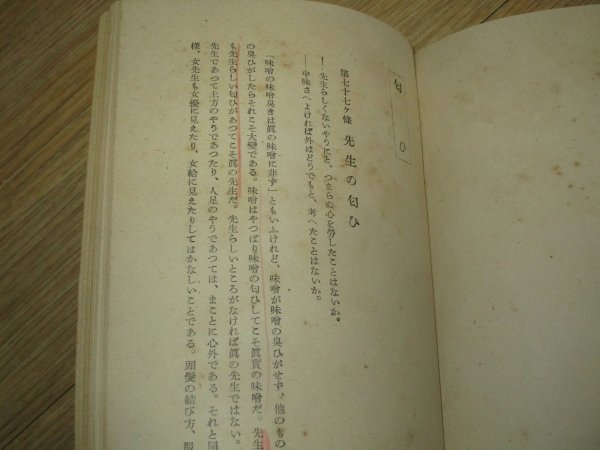 匂ひ
第七十七ヶ條 先生の匂ひ
――先生らしくないやうにと、つまらぬ心を勞したことはないか。
――中味さへよければ外はどうでもと、考へたことはないか。
「味噌の味噌臭きは眞の味噌に非ず」ともいふけれど、味噌が味噌の臭ひがせず、他のもの
の臭ひがしたらそれこそ大變である。味噌はやつぱり味噌の匂ひしてこそ眞實の味噌だ。先生
も先生らしい匂ひがあつてこそ眞の先生だ。先生らしいところがなければ眞の先生ではない。
先生であつて土方のやうであつたり、人足のやうであつては、まことに心外である。それと同
樣、女先生も女優に見えたり、女給に見えたりしてはかなしいことである。頭髮の結び方、服